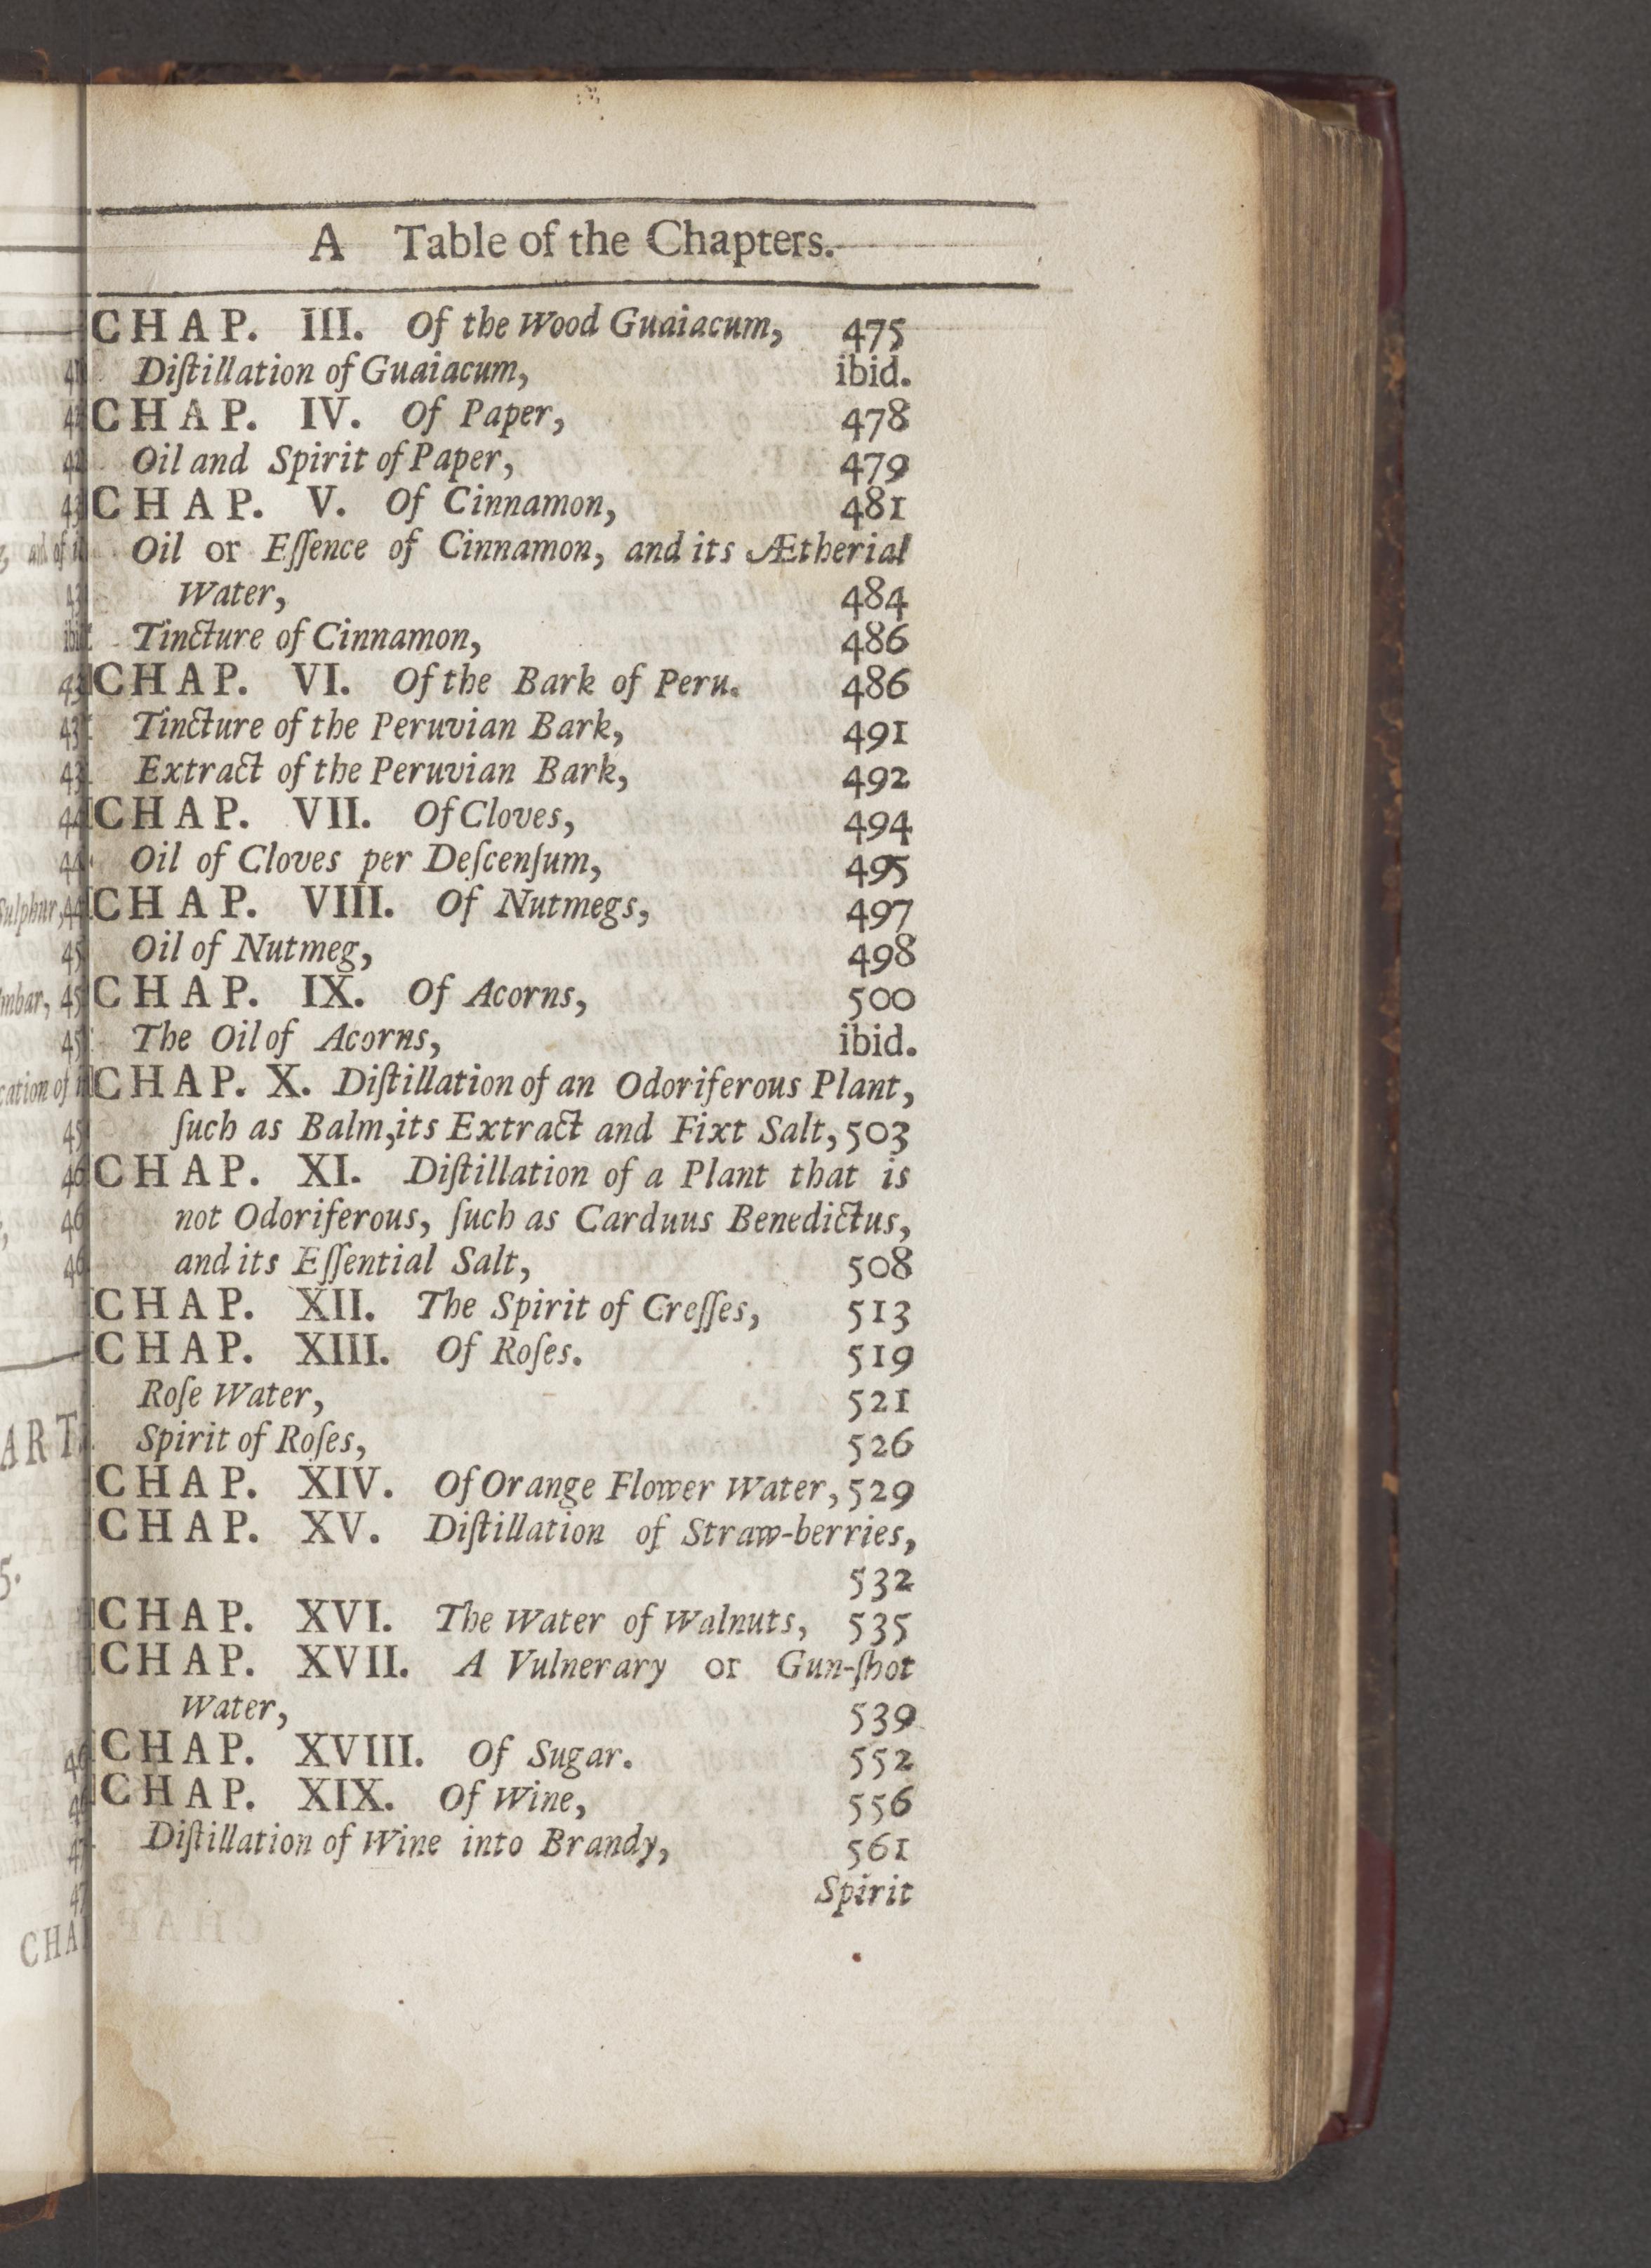 A Table of the Chapters.
CHAP. III. Of the Wood Guaiacum, 475
Diſtillation of Guaiacum, ibid.
CHAP. IV. Of Paper, 478
Oil and Spirit of Paper, 479
CHAP. V. Of Cinnamon, 481
Oil or Eſſence of Cinnamon, and its Ætherial
Water, 484
Tincture of Cinnamon, 486
CHAP. VI. Of the Bark of Peru. 486
Tincture of the Peruvian Bark, 491
Extract of the Peruvian Bark, 492
CHAP. VII. Of Cloves, 494
Oil of Cloves per Deſcenſum, 495
CHAP. VIII. Of Nutmegs, 497
Oil of Nutmeg, 498
CHAP. IX. Of Acorns, 500
The Oil of Acorns, ibid.
CHAP. X. Diſtillation of an Odoriferous Plant,
ſuch as Balm, its Extract and Fixt Salt, 503
CHAP. XI. Diſtillation of a Plant that is
not Odoriferous, ſuch as Carduus Benedictus,
and its Eſſential Salt, 508
CHAP. XII. The Spirit of Creſſes, 513
CHAP. XIII. Of Roſes. 519
Roſe Water, 521
Spirit of Roſes, 526
CHAP. XIV. Of Orange Flower Water, 529
CHAP. XV. Diſtillation of Straw-berries,
532
CHAP. XVI. The Water of Walnuts, 535
CHAP. XVII. A Vulnerary or Gun-ſhot
Water, 539
CHAP. XVIII. Of Sugar. 552
CHAP. XIX. Of Wine, 556
Diſtillation of Wine into Brandy, 561
Spirit